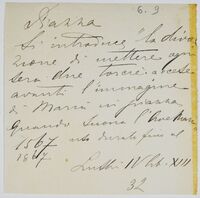 6. 9
Piazza
Si introduce la divo=
zione di mettere ogni
sera due torcie accese
avanti l'immagine
di Maria in piazza
quando suona l'Ave Maria
1567 uso durato fino al
1817
Lib. IV
32